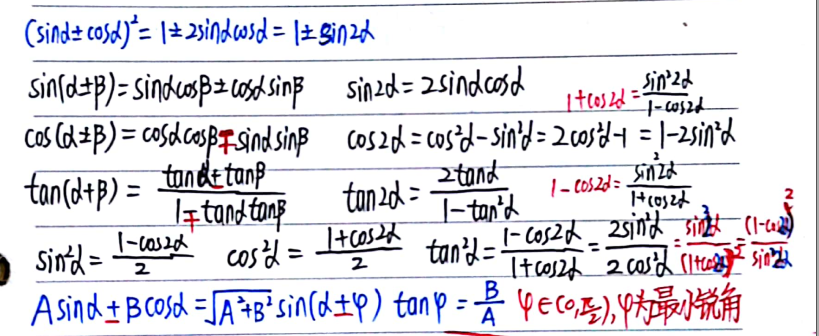 (sinα±cosα)²=1±2sinαcosα=1±sin2α
sin(α±β)=sinαcosβ±cosαsinβ  sin2α=2sinαcosα  1+cos2α=sin²2α/(1-cos2α)
cos(α±β)=cosαcosβ∓sinαsinβ  cos2α=cos²α-sin²α=2cos²α-1=1-2sin²α
tan(α+β)=(tanα±tanβ)/(1∓tanαtanβ)  tan2α=2tanα/(1-tan²α)  1-cos2α=sin²2α/(1+cos2α)
sin²α=(1-cos2α)/2  cos²α=(1+cos2α)/2  tan²α=(1-cos2α)/(1+cos2α)=2sin²α/2cos²α=sin²2α/(1+cos2α)²=(1-cos2α)²/sin²2α
Asinα±Bcosα=√(A²+B²)sin(α±φ) tanφ=B/A φ∈(0,π/2),φ为最小锐角